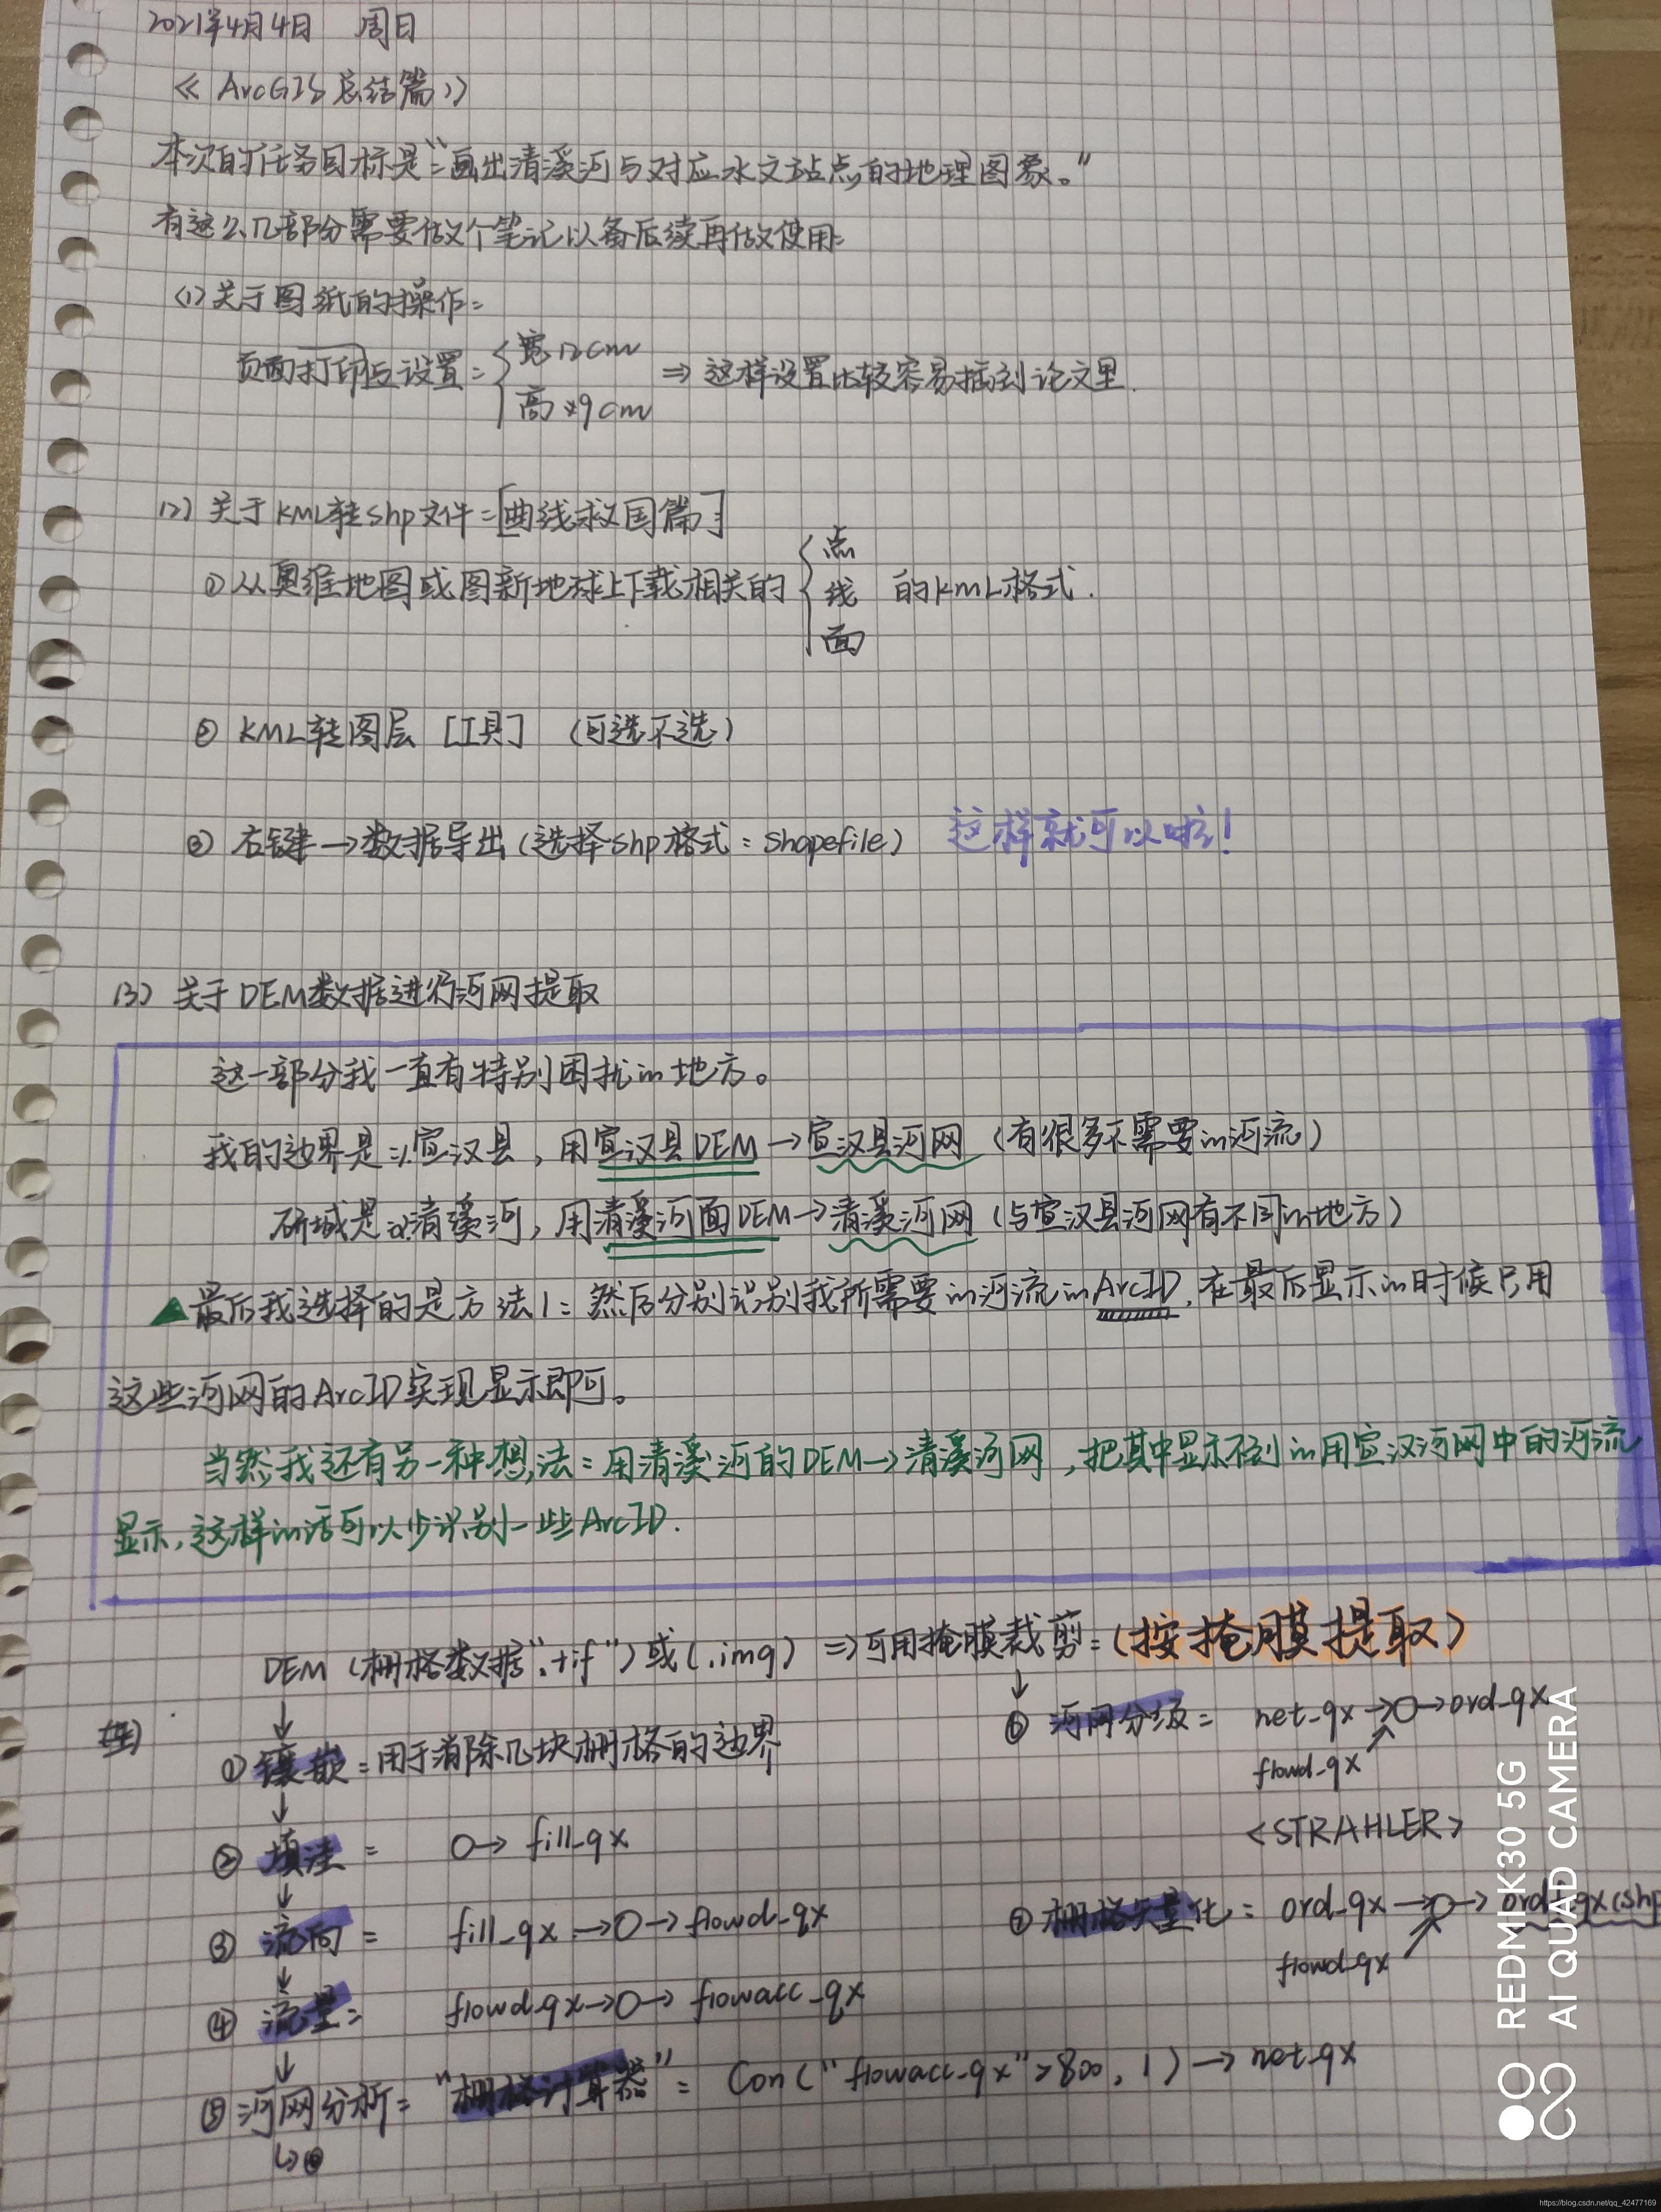 2021年4月4日 周日
《ArcGIS总结篇》
本次的任务目标是:"画出清溪河与对应水文站点的地理图象。"
有这么几部分需要做个笔记以备后续再做使用:
(1)关于图纸的操作:
页面打印与设置:{宽12cm
高*9cm
⇒这样设置比较容易插到论文里.
(2)关于KML转shp文件:[曲线救国篇]
①从奥维地图或图新地球上下载相关的{点
线
面
的KML格式.
② KML转图层 [工具] (可选不选)
③ 右键→数据导出(选择shp格式:Shapefile) 这样就可以啦!
(3)关于DEM数据进行河网提取
这一部分我一直有特别困扰的地方。
我的边界是:1.宣汉县,用宣汉县DEM→宣汉县河网(有很多不需要的河流)
研域是2.清溪河,用清溪河面DEM→清溪河网(与宣汉县河网有不同的地方)
▲最后我选择的是方法1:然后分别识别我所需要的河流的ArcID,在最后显示的时候只用
这些河网的ArcID实现显示即可。
当然我还有另一种想法:用清溪河的DEM→清溪河网,把其中显示不到的用宣汉河网中的河流
显示,这样的话可以少识别一些ArcID.
DEM(栅格数据".tif")或(.img)⇒可用掩膜裁剪:(按掩膜提取)
①镶嵌:用于消除几块栅格的边界
②填洼: O→fill_qx
③流向: fill_qx→O→flowd_qx
④流量: flowd_qx→O→flowacc_qx
⑤河网分析:"栅格计算器": Con("flowacc_qx">800,1)→net_qx
↳⑥
⑥河网分级: net_qx→O→ord_qx
flowd_qx
<STRAHLER>
⑦栅格矢量化: ord_qx→O→ord_qx(shp
flowd_qx
REDMI K30 5G
AI QUAD CAMERA
https://blog.csdn.net/qq_42477169